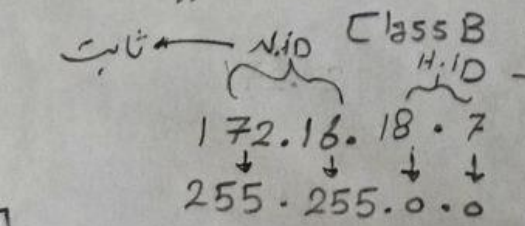 Class B
ثابت ← N.iD H.iD
172.16.18.7
255.255.0.0